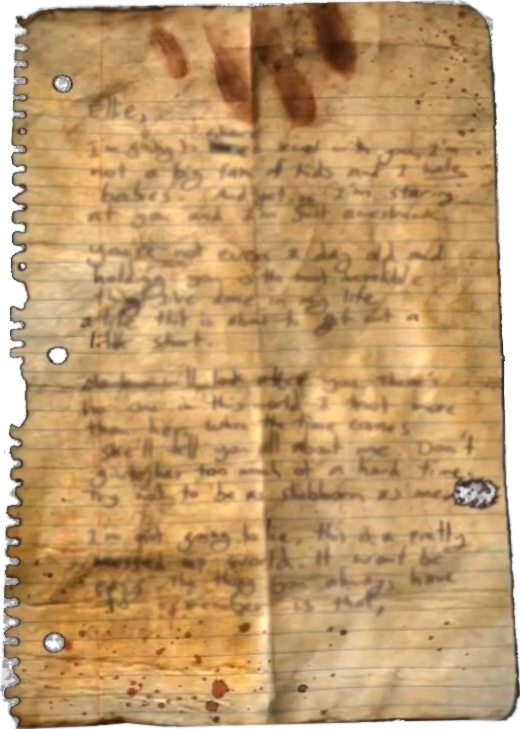 I'm going to share with you, I'm
not a big fan of kids and I hate
babies. And yet, I'm staring
at you and I'm just awestruck.
You're not even a day old and
holding you is the most incredible
thing I've done in my life
a life that is about to get cut a
little short.
you. There's
no one in this world I trust more
than her. When the time comes
she'll tell you all about me. Don't
give her too much of a hard time.
Try not to be as stubborn as me.
I'm not going to lie, this is a pretty
messed up world. It won't be
easy. The thing you always have
to remember is that,